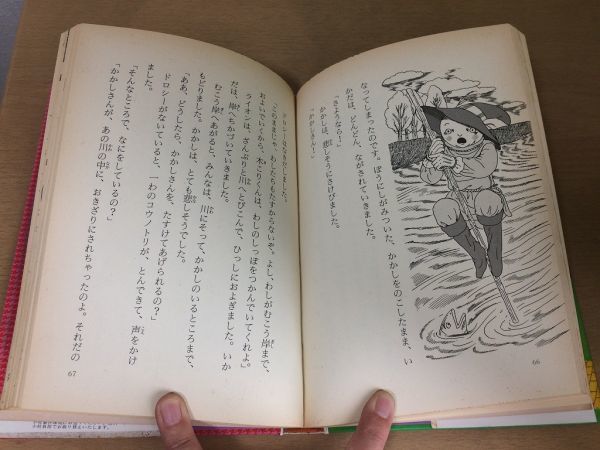 なってしまったのです。ぼうにしがみついた、かかしをのこしたまま、い
かだは、どんどん、ながされていきました。
「さようならー！」
かかしは、悲しそうにさけびました。
「かかしさんー！」
66
ドロシーはなきだしました。
「このままじゃ、わしたちもたすからないぞ。よし、わしがむこう岸まで、
およいでいくから、木こりくんは、わしのしっぽをつかんでいてくれよ。」
ライオンは、ざんぶりと川へとびこんで、ひっしにおよぎました。いか
だは、岸へちかづいていきました。
むこう岸へあがると、みんなは、川にそって、かかしのいるところまで、
もどりました。かかしは、とても悲しそうでした。
「ああ、どうしたら、かかしさんを、たすけてあげられるの？」
ドロシーがないていると、一わのコウノトリが、とんできて、声をかけ
ました。
「そんなところで、なにをしているの？」
「かかしさんが、あの川の中に、おきざりにされちゃったのよ。それだの
67